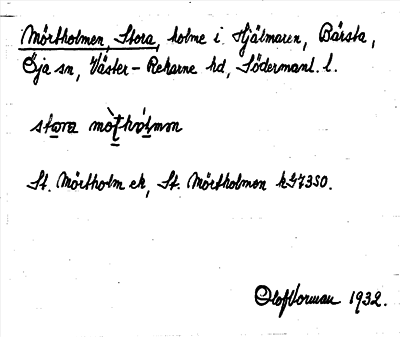 Mörtholmen, Stora, holme i Hjälmaren, Bärsta,
Öja sn, Väster-Rekarne hd, Södermanl. l.
stora mòt̠hólmən
St. Mörtholm ek, St. Mörtholmen hG7350.
Olof Norman 1932.